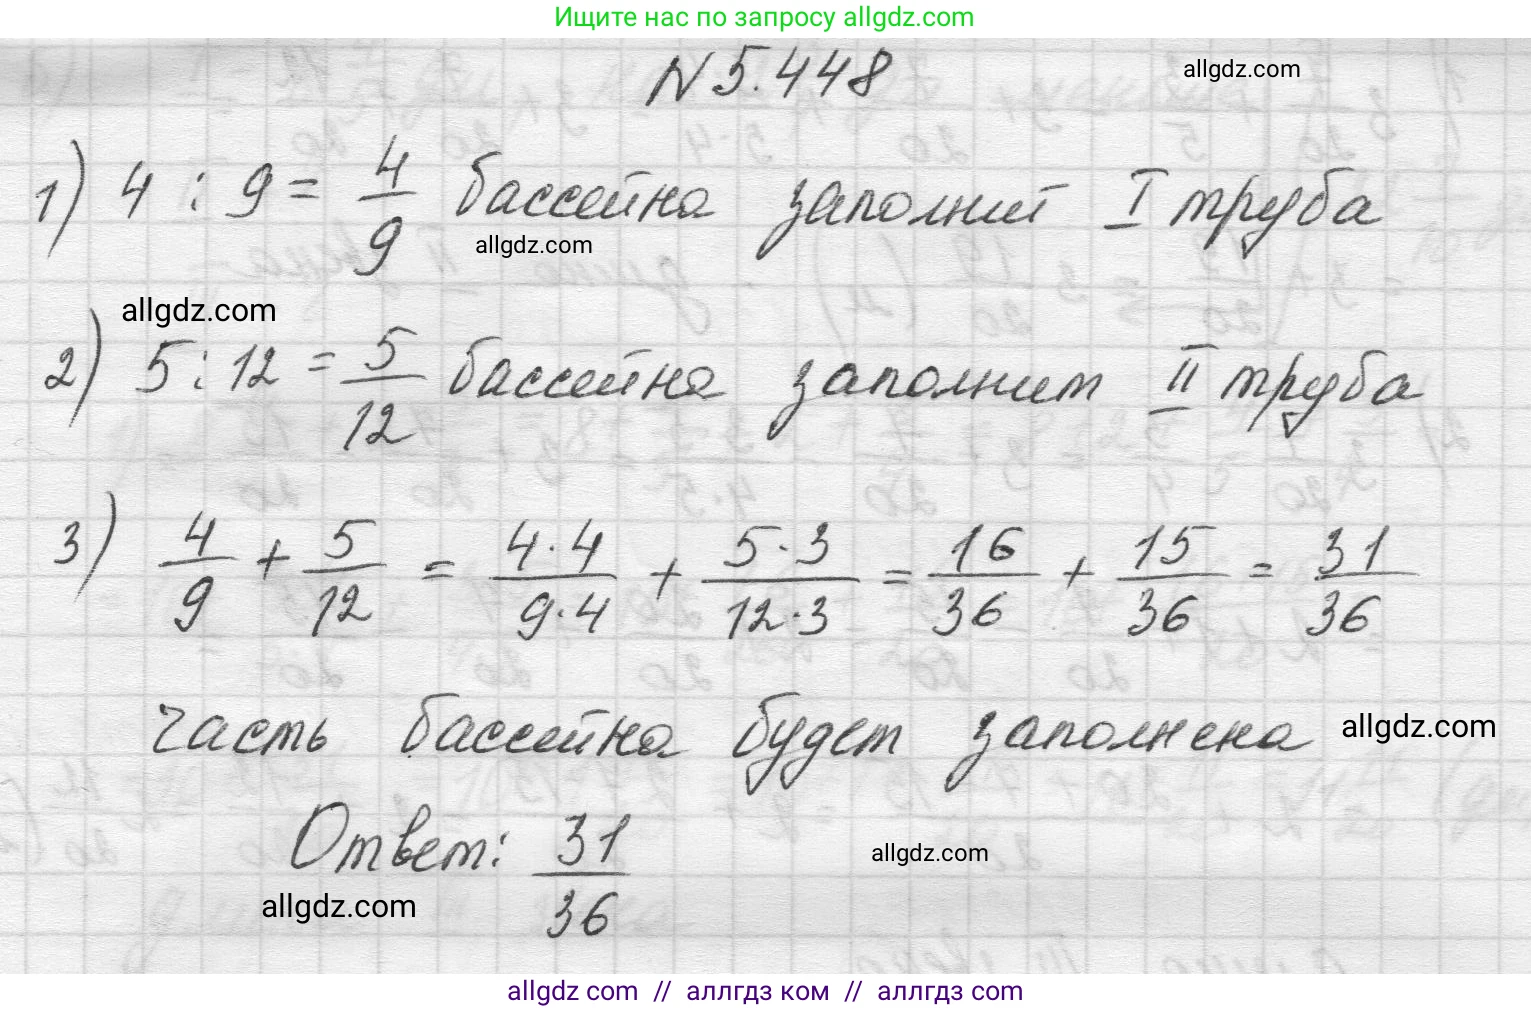 Ищите нас по запросу allgdz.com
N 5.448
allgdz.com
1) 4 : 9 = 4/9 бассейна заполнит I труба
allgdz.com
allgdz.com
2) 5 : 12 = 5/12 бассейна заполнит II труба
3) 4/9 + 5/12 = 4·4/9·4 + 5·3/12·3 = 16/36 + 15/36 = 31/36
часть бассейна будет заполнена
allgdz.com
Ответ: 31/36
allgdz.com
allgdz.com
allgdz com // аллгдз ком // аллгдз com